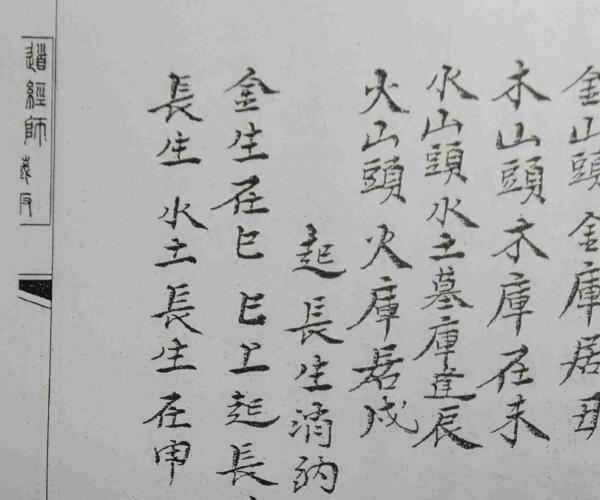 金山頭金庫居丑
木山頭木庫在未
水山頭水土墓庫逢辰
火山頭火庫居戍
起長生消納
金生在巳巳上起長
長生水土長生在申
道經師